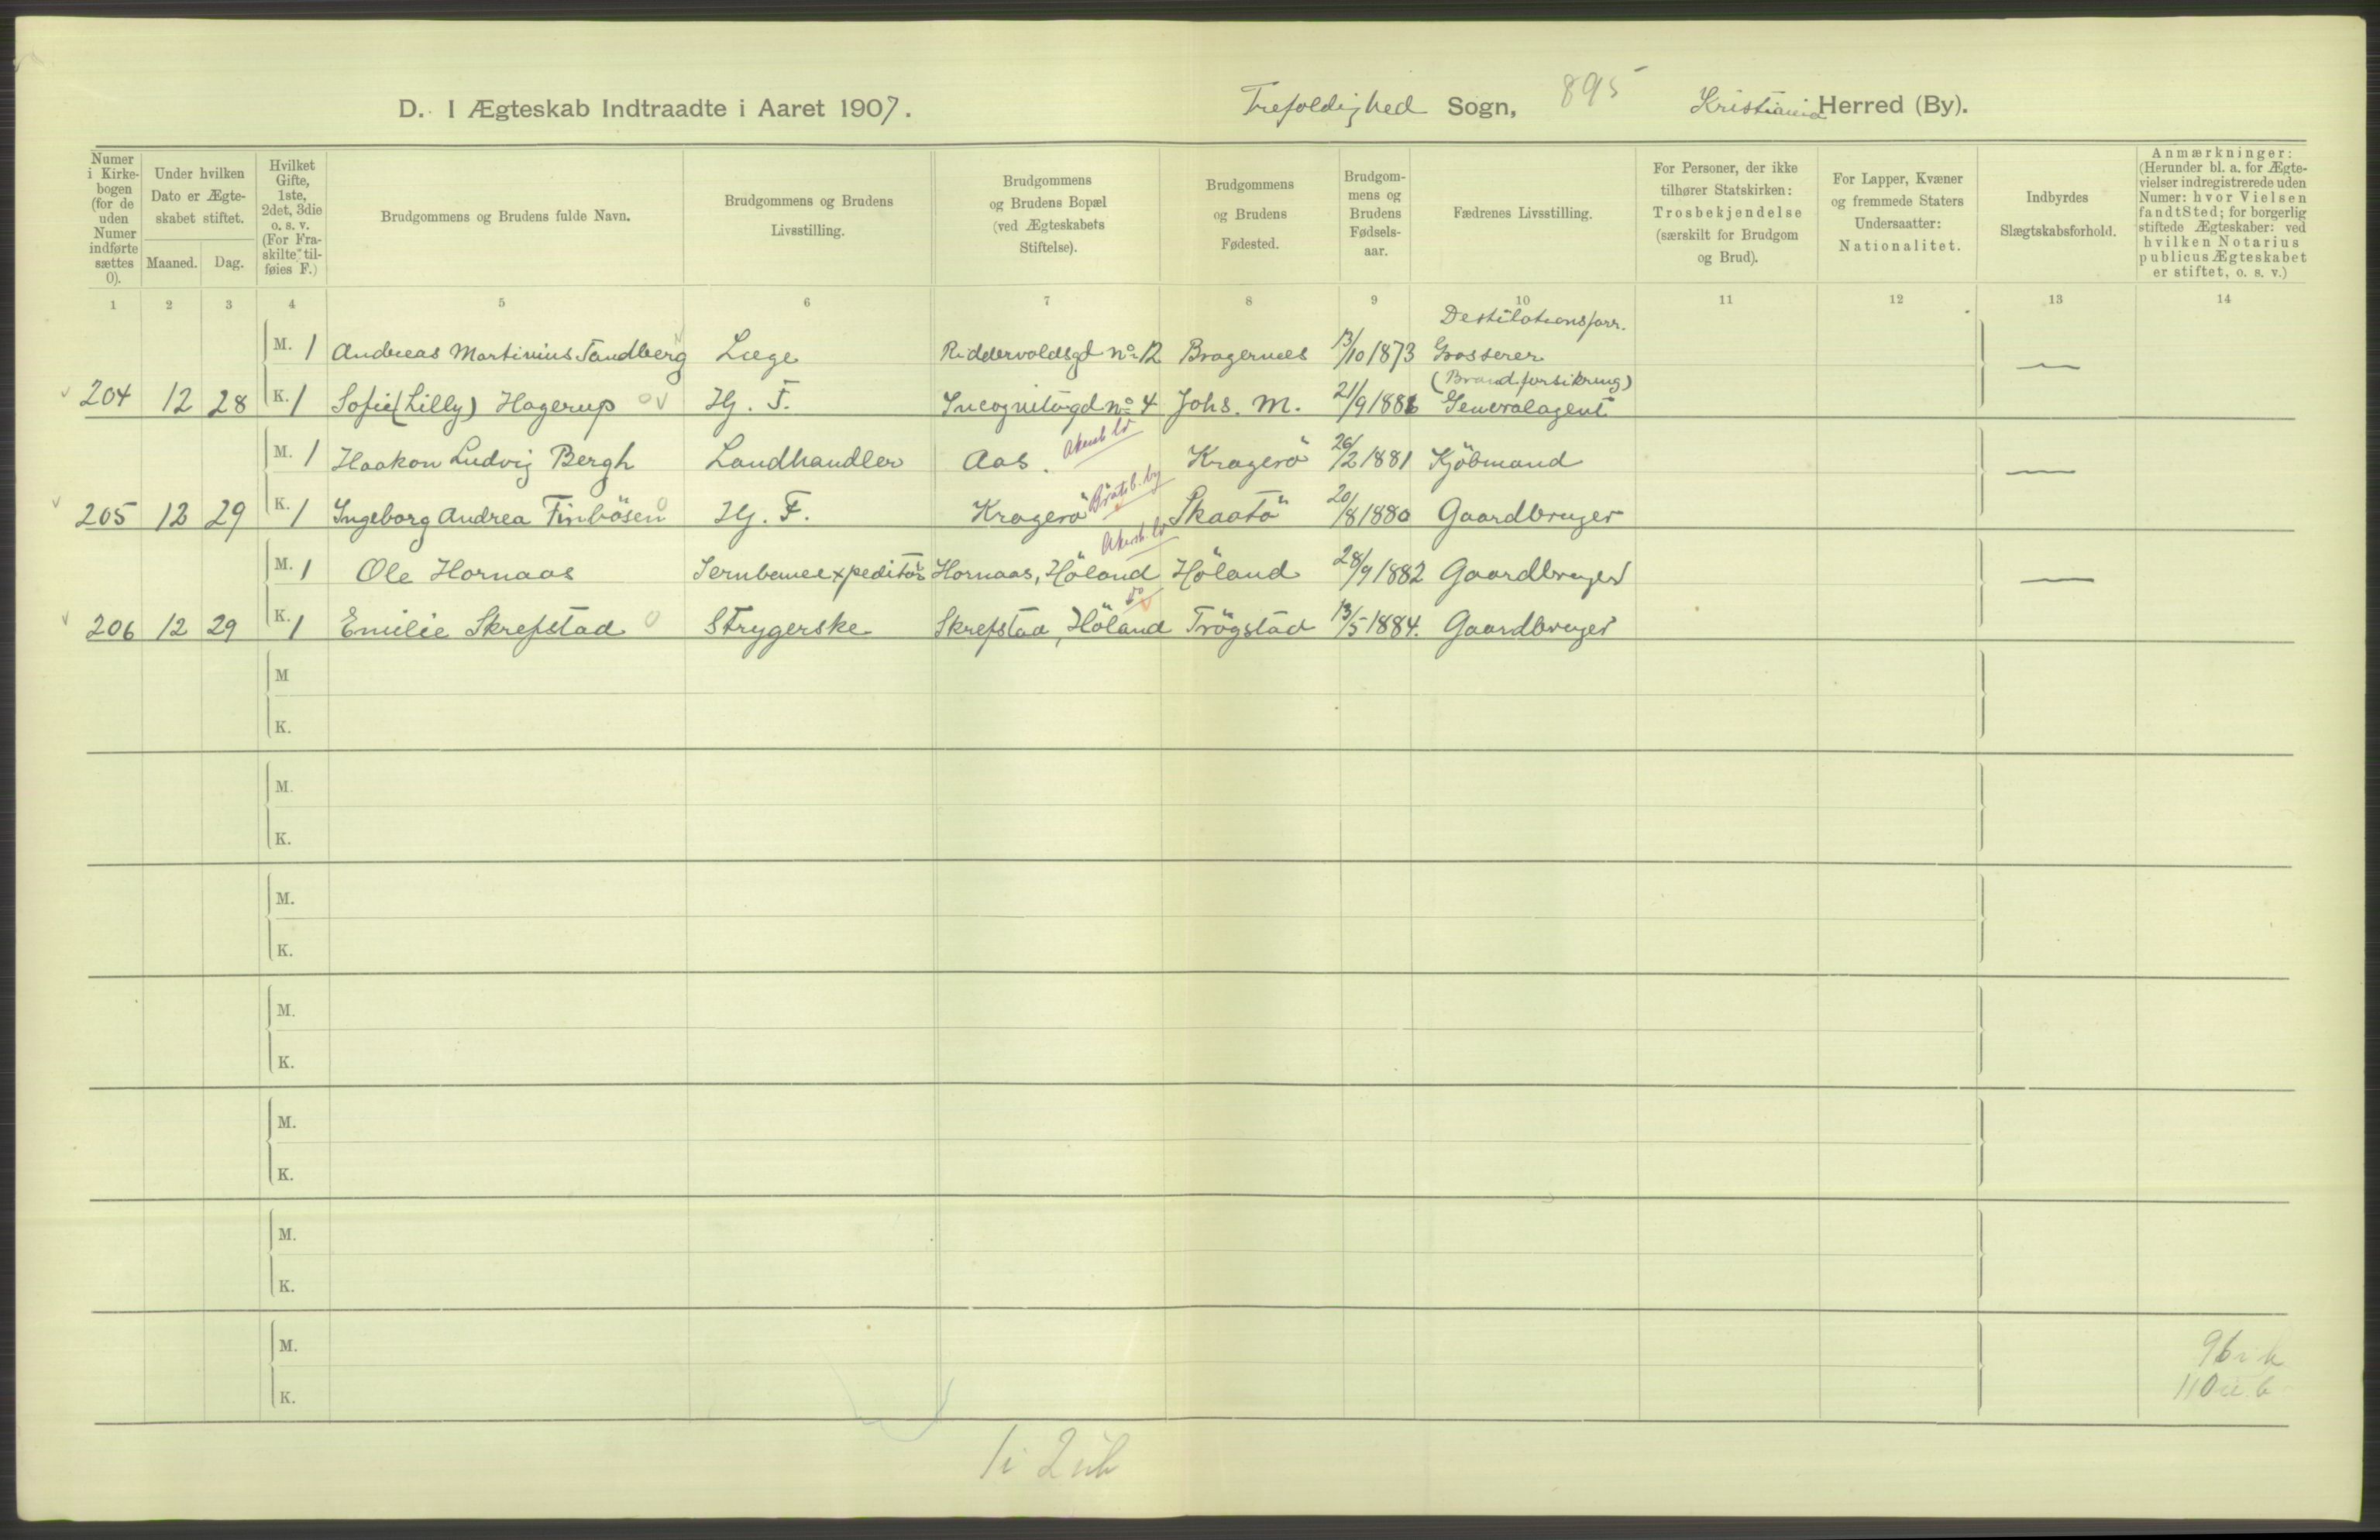 D. I Ægteskab Indtraadte i Aaret 1907. Trefoldighed Sogn, 895 Kristiania Herred (By).
Numer i Kirkebogen (for de uden Numer indførte sættes 0).
Under hvilken Dato er Ægteskabet stiftet.
Maaned. Dag.
Hvilket Gifte, 1ste, 2det, 3die o. s. v. (For Fraskilte tilføies F.)
Brudgommens og Brudens fulde Navn.
Brudgommens og Brudens Livsstilling.
Brudgommens og Brudens Bopæl (ved Ægteskabets Stiftelse).
Brudgommens og Brudens Fødested.
Brudgommens og Brudens Fødselsaar.
Fædrenes Livsstilling.
For Personer, der ikke tilhører Statskirken: Trosbekjendelse (særskilt for Brudgom og Brud).
For Lapper, Kvæner og fremmede Staters Undersaatter: Nationalitet.
Indbyrdes Slægtskabsforhold.
Anmærkninger: (Herunder bl. a. for Ægtevielser indregistrerede uden Numer: hvor Vielsen fandt Sted; for borgerlig stiftede Ægteskaber: ved hvilken Notarius publicus Ægteskabet er stiftet, o. s. v.)
1 2 3 4 5 6 7 8 9 10 11 12 13 14
Destilationsforr.
M. 1 Andreas Martinius Sandberg Læge Riddervoldsgd No 12 Bragernes 13/10 1873 Grosserer
(Brandforsikring)
204 12 28 K. 1 Sofie (Lilly) Hagerup Hj. F. Incognitogd No 4 Johs. M. 21/9 1886 Generalagent
M. 1 Haakon Ludvig Bergh Landhandler Aas. Akersh. ld Kragerö 26/2 1881 Kjöbmand
205 12 29 K. 1 Ingeborg Andrea Finbösen Hj. F. Kragerö Bratsb. by Skaatö 20/8 1880 Gaardbruger
M. 1 Ole Hornaas Jernbaneexpeditör Hornaas, Höland Akersh. ld Höland 28/9 1882 Gaardbruger
206 12 29 K. 1 Emilie Skrefstad Strygerske Skrefstad, Höland do Trögstad 13/5 1884. Gaardbruger
M
K.
M.
K.
M.
K.
M.
K.
M.
K.
M.
K.
M.
K.
96 i b
110 u. b
1 i 2 ub